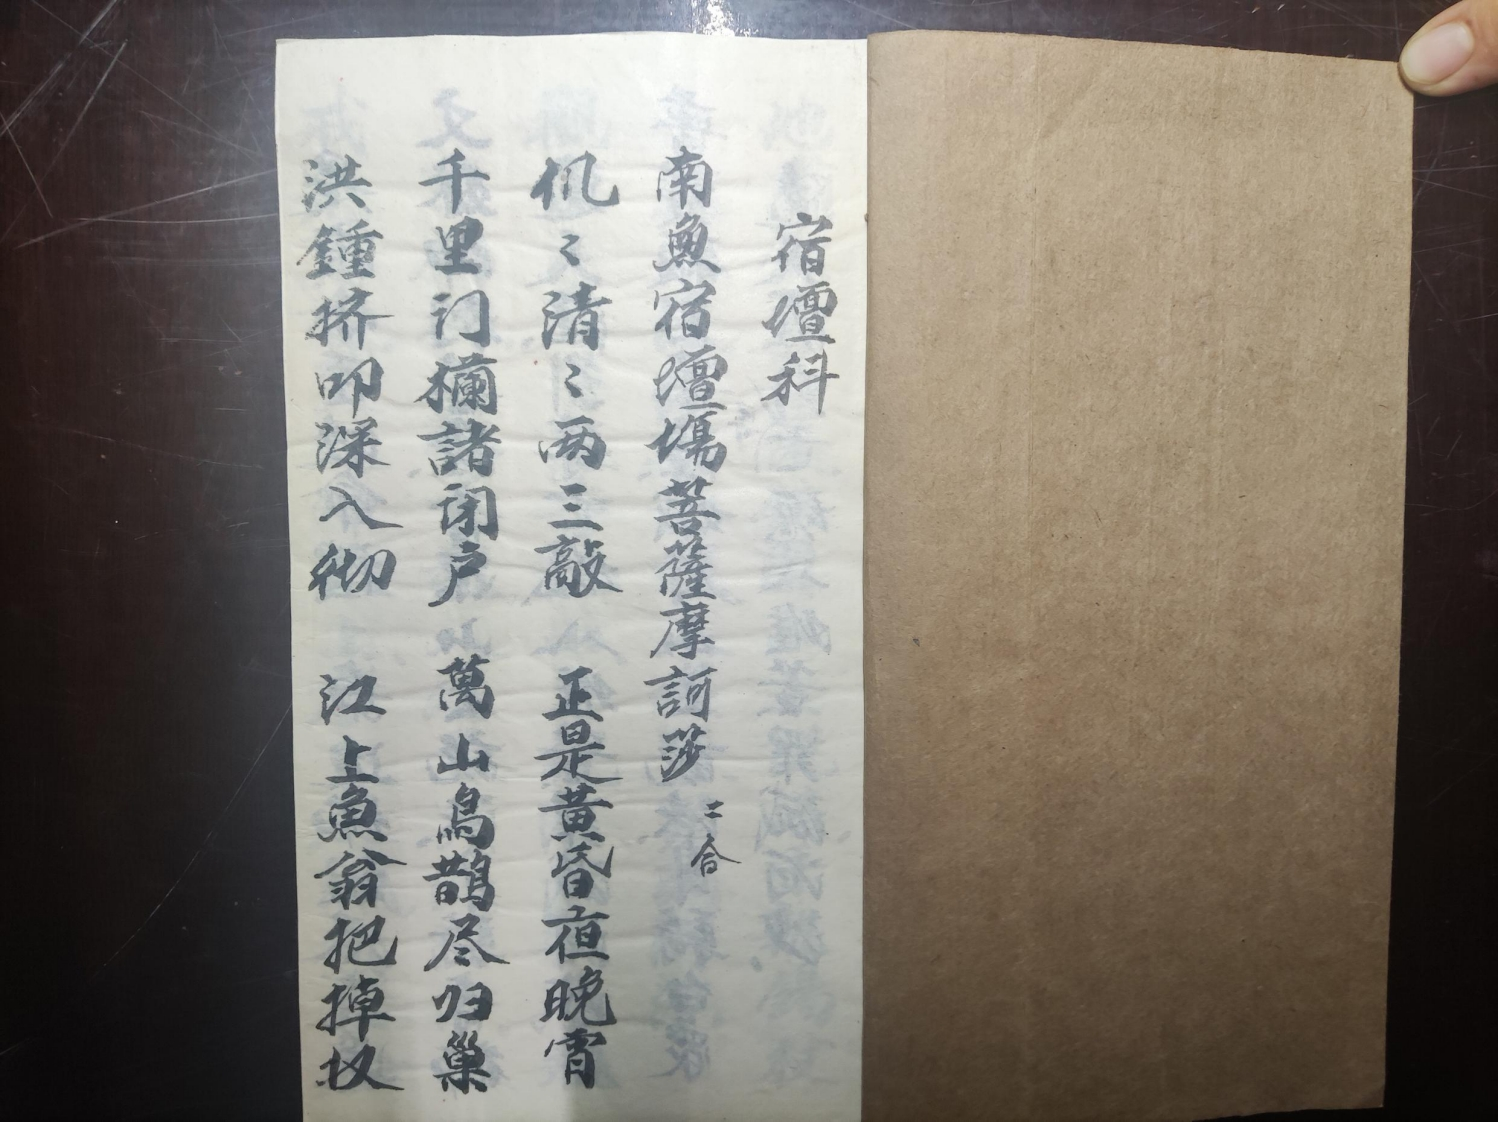 宿壇科
南無宿壇塲菩薩摩訶莎 二合
仉〻清〻两三敲 正是黄昏夜晚霄
千里门欄諸闭户 萬山鳥鵲尽归巢
洪鍾挤叩深入彻 江上魚翁把掉